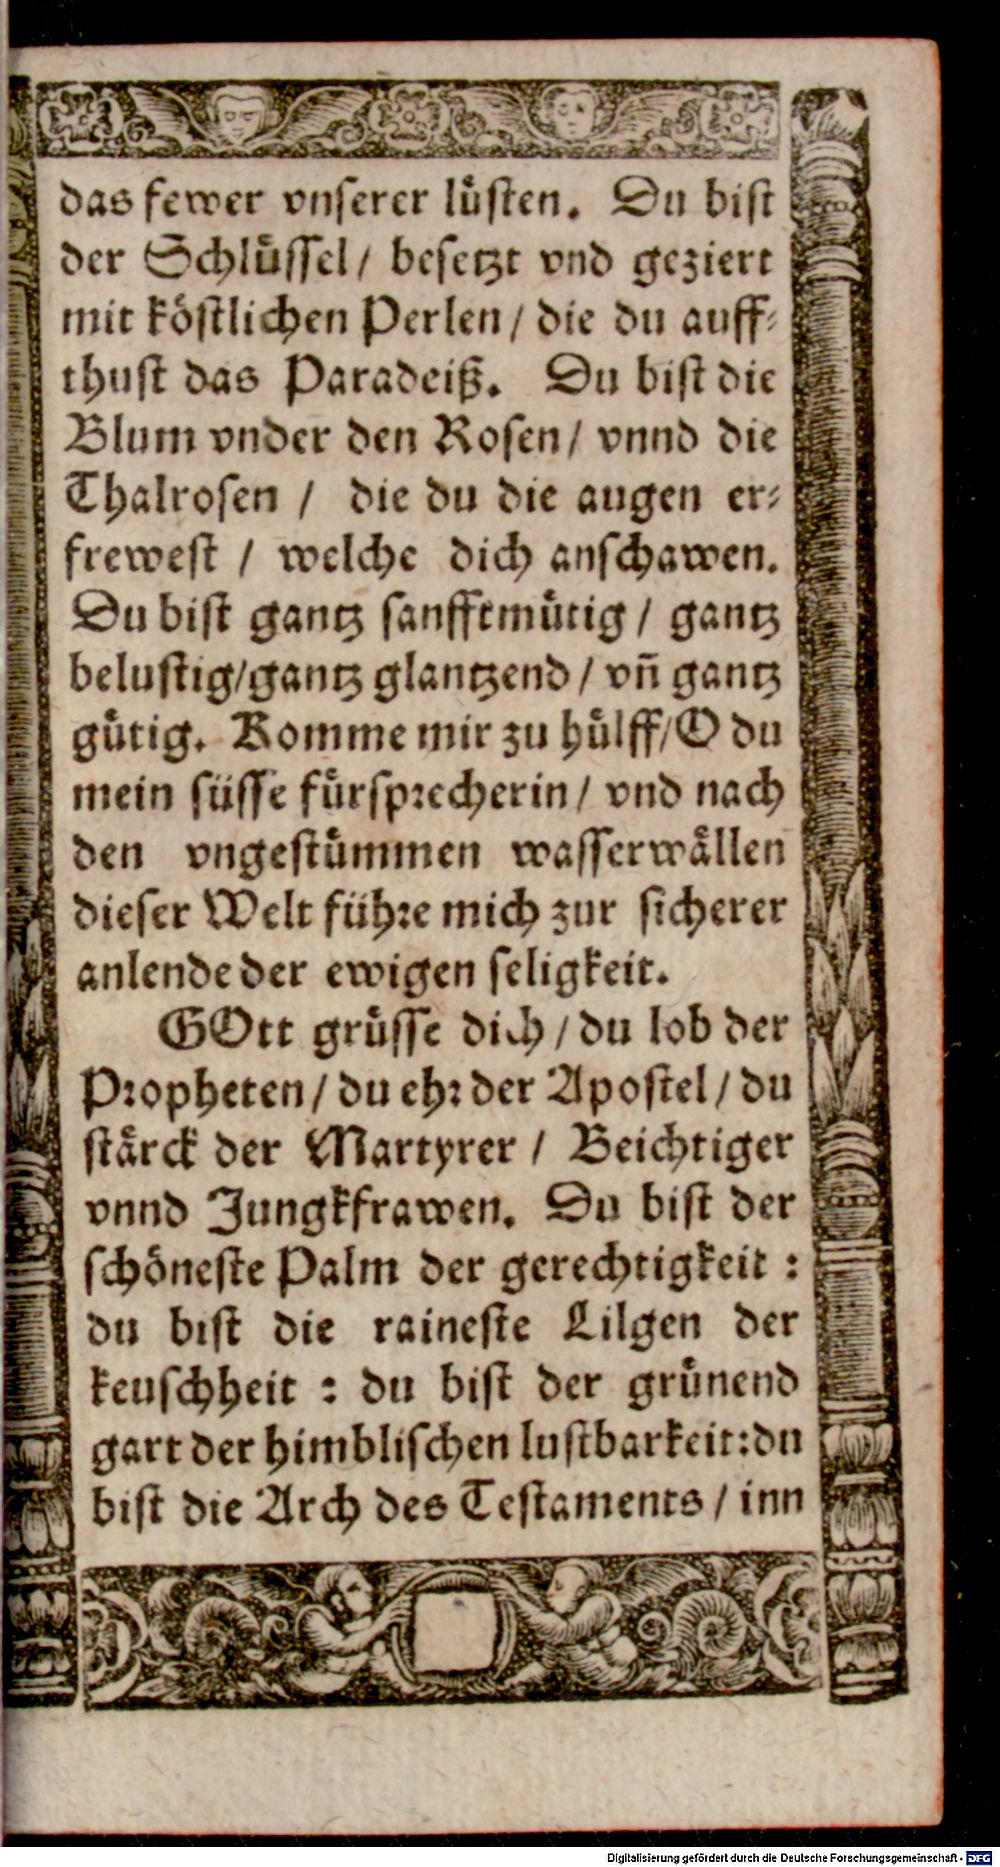 das fewer vnserer lüsten. Du bist
der Schlüssel / besetzt vnd geziert
mit köstlichen Perlen / die du auff-
thust das Paradeiß. Du bist die
Blum vnder den Rosen / vnnd die
Thalrosen / die du die augen er-
frewest / welche dich anschawen.
Du bist gantz sanfftmütig / gantz
belustig/gantz glantzend / vñ gantz
gütig. Komme mir zu hülff/O du
mein süsse fürsprecherin / vnd nach
den vngestümmen wasserwällen
dieser Welt führe mich zur sicherer
anlende der ewigen seligkeit.
GOtt grüsse dich / du lob der
Propheten / du ehr der Apostel / du
stärck der Martyrer / Beichtiger
vnnd Jungkfrawen. Du bist der
schöneste Palm der gerechtigkeit :
du bist die raineste Lilgen der
keuschheit : du bist der grünend
gart der himblischen lustbarkeit:du
bist die Arch des Testaments / inn
Digitalisierung gefördert durch die Deutsche Forschungsgemeinschaft - DFG